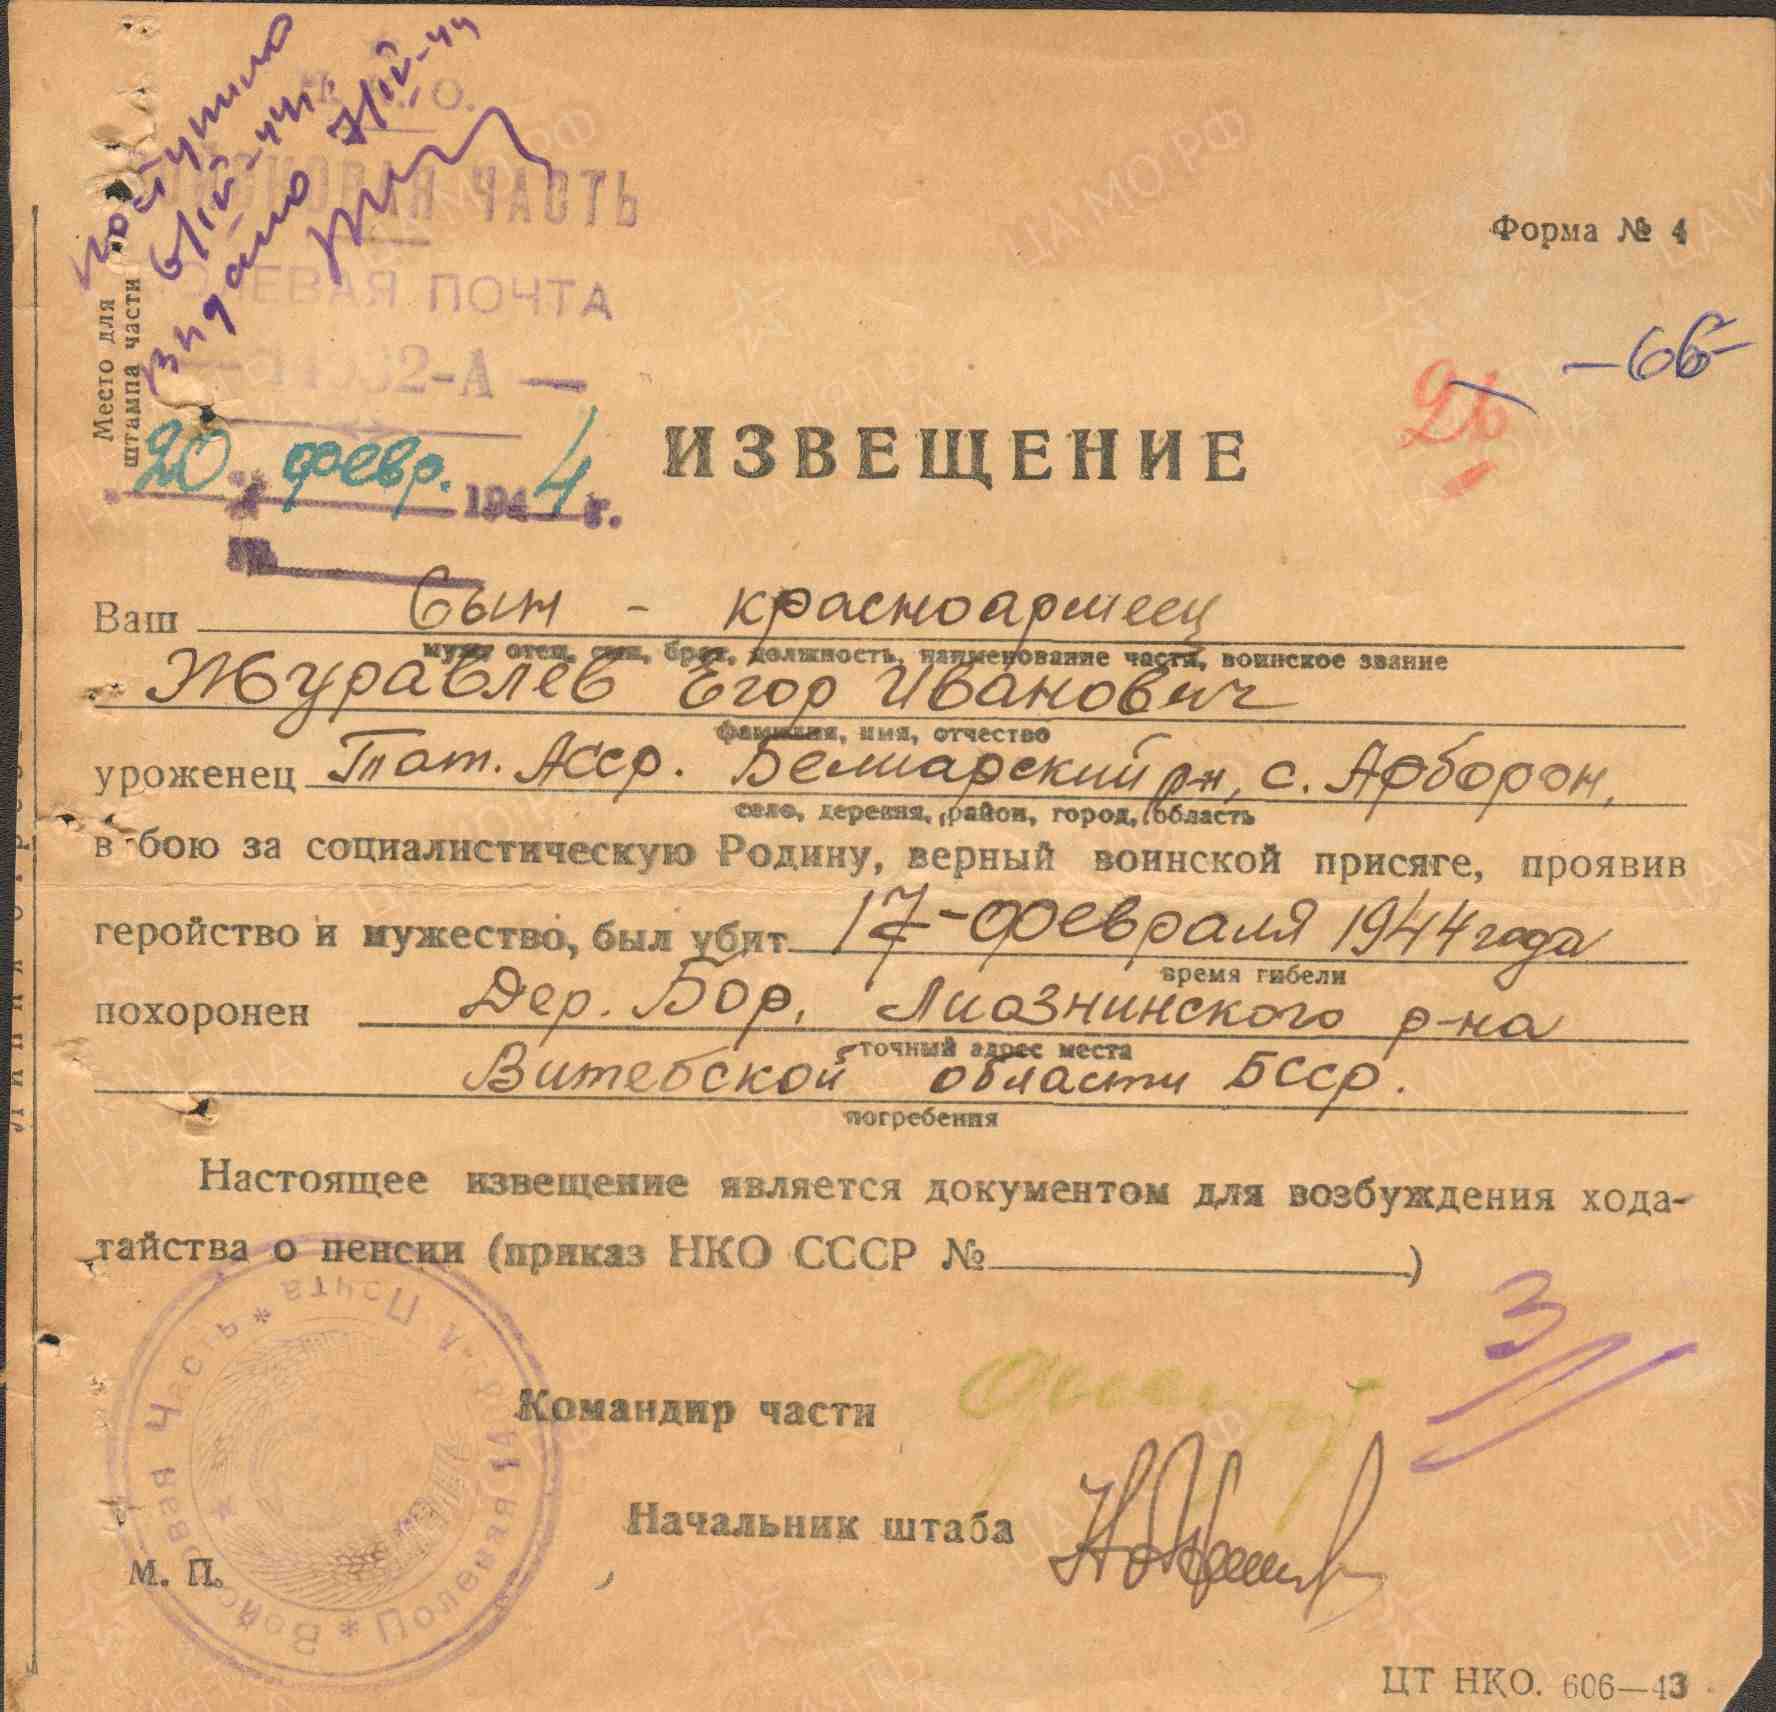 поступило
6/IV-44 г.
выдано 7/IV-44
Н. К. О.
ВОЙСКОВАЯ ЧАСТЬ
ПОЛЕВАЯ ПОЧТА
2-А —
Место для
штампа части
20 февр. 1944 г.
№
Форма № 4
26
-66-
ИЗВЕЩЕНИЕ
Ваш Сын - красноармеец
муж, отец, сын, брат, должность, наименование части, воинское звание
Журавлев Егор Иванович
фамилия, имя, отчество
уроженец Тат. Асср. Белиарский р-н, с. Арборон,
село, деревня, район, город, область
в бою за социалистическую Родину, верный воинской присяге, проявив
геройство и мужество, был убит 17-февраля 1944 года
время гибели
похоронен Дер. Бор, Лиознинского р-на
точный адрес места
Витебской области БССР.
погребения
Настоящее извещение является документом для возбуждения хода-
тайства о пенсии (приказ НКО СССР № )
3
Командир части
Начальник штаба
М. П.
Войсковая Часть * Полевая Почта *
ЦТ НКО. 606—43
ЦА МО РФ